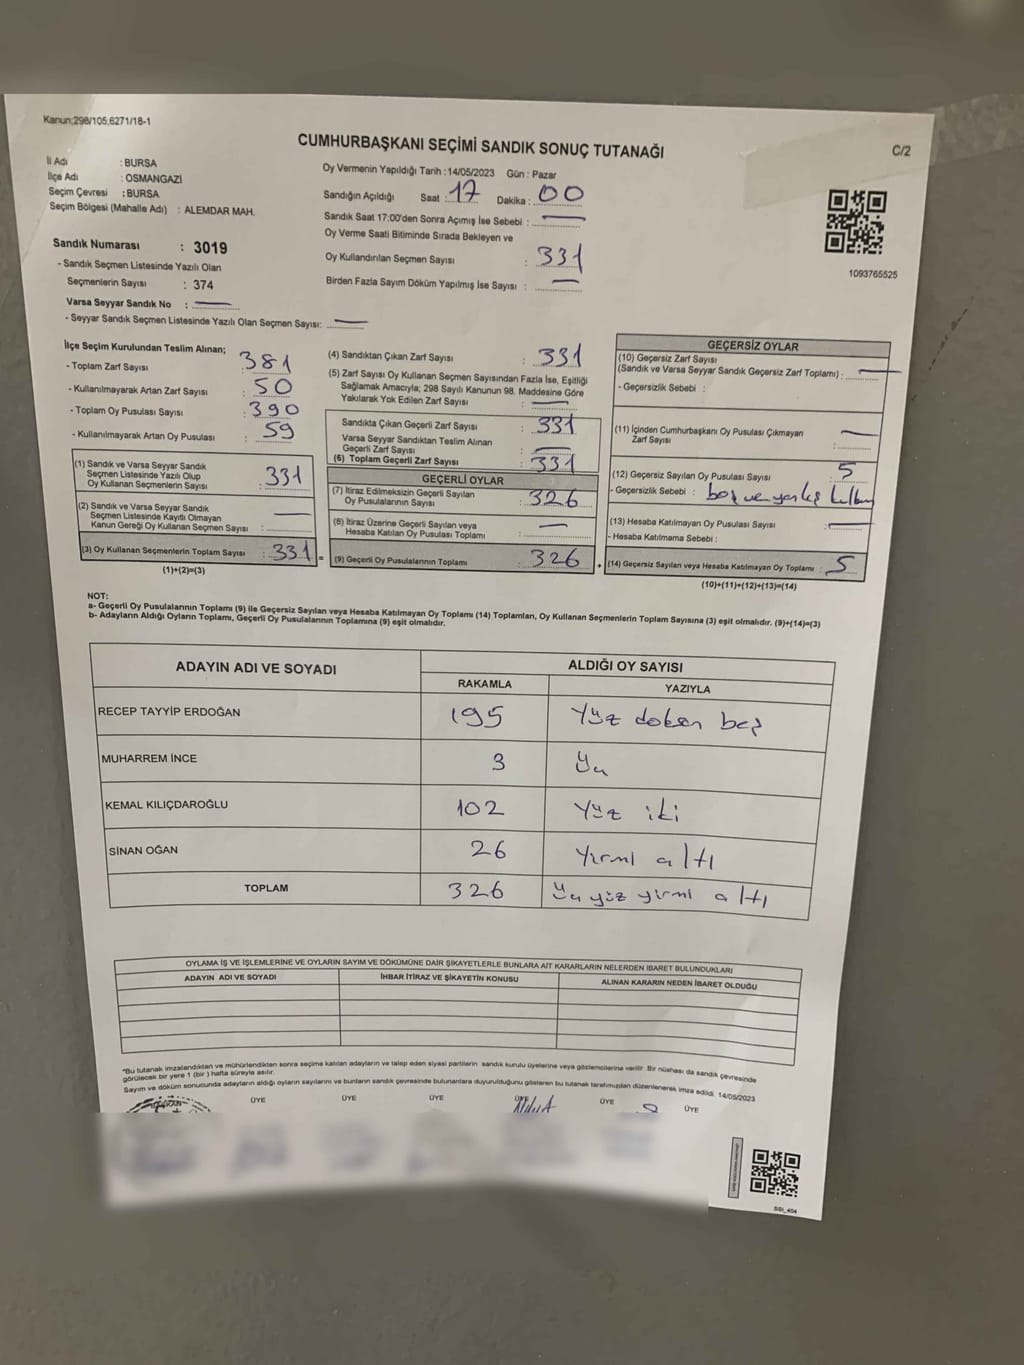 Kanun:298/105,6271/18-1
C/2
CUMHURBAŞKANI SEÇİMİ SANDIK SONUÇ TUTANAĞI
İl Adı : BURSA
İlçe Adı : OSMANGAZİ
Seçim Çevresi : BURSA
Seçim Bölgesi (Mahalle Adı) : ALEMDAR MAH.
Sandık Numarası : 3019
- Sandık Seçmen Listesinde Yazılı Olan
Seçmenlerin Sayısı : 374
Varsa Seyyar Sandık No :
- Seyyar Sandık Seçmen Listesinde Yazılı Olan Seçmen Sayısı:
Oy Vermenin Yapıldığı Tarih : 14/05/2023 Gün : Pazar
Sandığın Açıldığı Saat : 17 Dakika : 00
Sandık Saat 17:00'den Sonra Açımış İse Sebebi :
Oy Verme Saati Bitiminde Sırada Bekleyen ve
Oy Kullandırılan Seçmen Sayısı : 331
Birden Fazla Sayım Döküm Yapılmış İse Sayısı :
1093765525
İlçe Seçim Kurulundan Teslim Alınan;
- Toplam Zarf Sayısı : 381
- Kullanılmayarak Artan Zarf Sayısı : 50
- Toplam Oy Pusulası Sayısı : 390
- Kullanılmayarak Artan Oy Pusulası : 59
(1) Sandık ve Varsa Seyyar Sandık
Seçmen Listesinde Yazılı Olup
Oy Kullanan Seçmenlerin Sayısı : 331
(2) Sandık ve Varsa Seyyar Sandık
Seçmen Listesinde Kayıtlı Olmayan
Kanun Gereği Oy Kullanan Seçmen Sayısı :
(3) Oy Kullanan Seçmenlerin Toplam Sayısı : 331 =
(1)+(2)=(3)
(4) Sandıktan Çıkan Zarf Sayısı : 331
(5) Zarf Sayısı Oy Kullanan Seçmen Sayısından Fazla İse, Eşitliği
Sağlamak Amacıyla; 298 Sayılı Kanunun 98. Maddesine Göre
Yakılarak Yok Edilen Zarf Sayısı :
Sandıkta Çıkan Geçerli Zarf Sayısı : 331
Varsa Seyyar Sandıktan Teslim Alınan
Geçerli Zarf Sayısı :
(6) Toplam Geçerli Zarf Sayısı : 331
GEÇERLİ OYLAR
(7) İtiraz Edilmeksizin Geçerli Sayılan
Oy Pusulalarının Sayısı : 326
(8) İtiraz Üzerine Geçerli Sayılan veya
Hesaba Katılan Oy Pusulası Toplamı :
(9) Geçerli Oy Pusulalarının Toplamı : 326 +
GEÇERSİZ OYLAR
(10) Geçersiz Zarf Sayısı
(Sandık ve Varsa Seyyar Sandık Geçersiz Zarf Toplamı) :
- Geçersizlik Sebebi :
(11) İçinden Cumhurbaşkanı Oy Pusulası Çıkmayan
Zarf Sayısı :
(12) Geçersiz Sayılan Oy Pusulası Sayısı : 5
- Geçersizlik Sebebi : boş ve yanlış
(13) Hesaba Katılmayan Oy Pusulası Sayısı :
- Hesaba Katılmama Sebebi :
(14) Geçersiz Sayılan veya Hesaba Katılmayan Oy Toplamı : 5
(10)+(11)+(12)+(13)=(14)
NOT:
a- Geçerli Oy Pusulalarının Toplamı (9) ile Geçersiz Sayılan veya Hesaba Katılmayan Oy Toplamı (14) Toplamları, Oy Kullanan Seçmenlerin Toplam Sayısına (3) eşit olmalıdır. (9)+(14)=(3)
b- Adayların Aldığı Oyların Toplamı, Geçerli Oy Pusulalarının Toplamına (9) eşit olmalıdır.
ADAYIN ADI VE SOYADI ALDIĞI OY SAYISI
RAKAMLA YAZIYLA
RECEP TAYYİP ERDOĞAN 195 Yüz doksan beş
MUHARREM İNCE 3 Üç
KEMAL KILIÇDAROĞLU 102 Yüz iki
SİNAN OĞAN 26 Yirmi altı
TOPLAM 326 Üç yüz yirmi altı
OYLAMA İŞ VE İŞLEMLERİNE VE OYLARIN SAYIM VE DÖKÜMÜNE DAİR ŞİKAYETLERLE BUNLARA AİT KARARLARIN NELERDEN İBARET BULUNDUKLARI
ADAYIN ADI VE SOYADI İHBAR İTİRAZ VE ŞİKAYETİN KONUSU ALINAN KARARIN NEDEN İBARET OLDUĞU
*Bu tutanak imzalandıktan ve mühürlendikten sonra seçime katılan adayların ve talep eden siyasi partilerin sandık kurulu üyelerine veya gözlemcilerine verilir. Bir nüshası da sandık çevresinde
görülecek bir yere 1 (bir) hafta süreyle asılır.
Sayım ve döküm sonucunda adayların aldığı oyların sayılarını ve bunların sandık çevresinde bulunanlara duyurulduğunu gösteren bu tutanak tarafımızdan düzenlenerek imza edildi. 14/05/2023
ÜYE ÜYE ÜYE ÜYE ÜYE ÜYE
SSI_454